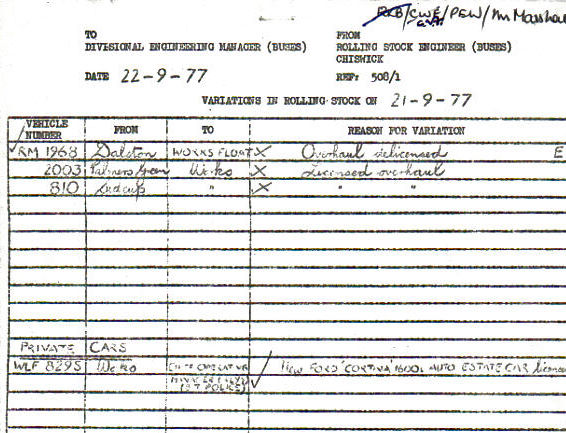 RXB/CWE/PEW/Mr Marshall
TO
DIVISIONAL ENGINEERING MANAGER (BUSES)
FROM
ROLLING STOCK ENGINEER (BUSES)
CHISWICK
DATE 22-9-77
REF: 508/1
VARIATIONS IN ROLLING STOCK ON 21-9-77
VEHICLE NUMBER FROM TO REASON FOR VARIATION
RM 1968 Dalston WORKS FLOAT X Overhaul delicensed E
2003 Palmers Green Works X Licensed overhaul
810 Sidcup " X " "
PRIVATE CARS
WLF 829S Works CHIEF OPERATING ✓ New FORD 'CORTINA' 1600L AUTO ESTATE CAR licensed
MANAGER
(L.T. POLICE)